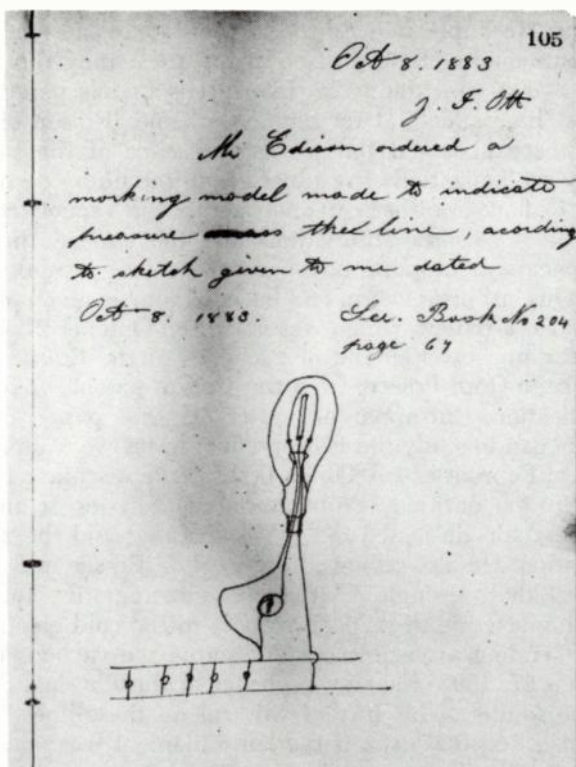 105
Oct 8. 1883
J. F. Ott
Mr Edison ordered a
working model made to indicate
preasure the line, acording
to sketch given to me dated
Oct 8. 1883. See. Book No 204
page 67